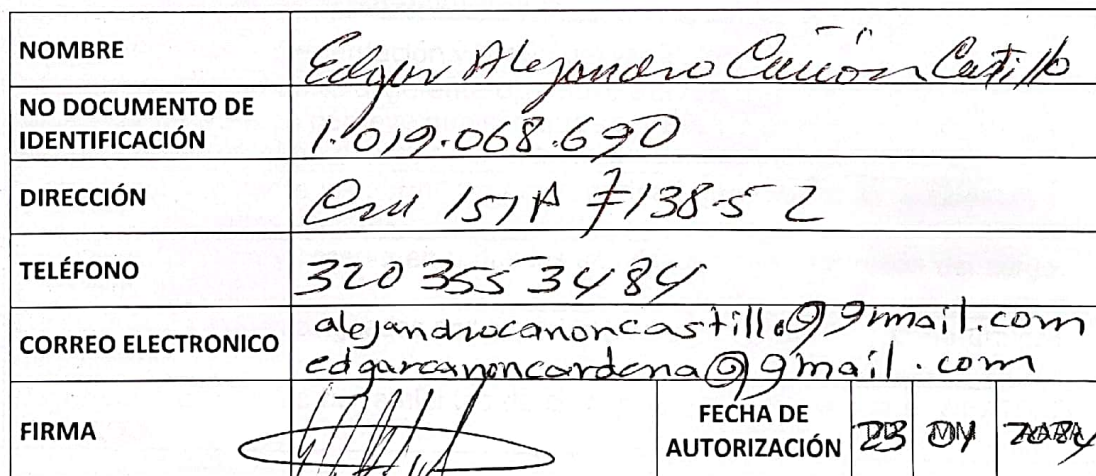 NOMBRE Edgar Alejandro Cañón Castillo
NO DOCUMENTO DE
IDENTIFICACIÓN 1.019.068.690
DIRECCIÓN Cra 151A #138-52
TELÉFONO 320 355 3484
CORREO ELECTRONICO alejandrocanoncastillo@gmail.com
edgarcanoncardena@gmail.com
FIRMA
FECHA DE
AUTORIZACIÓN 23 04